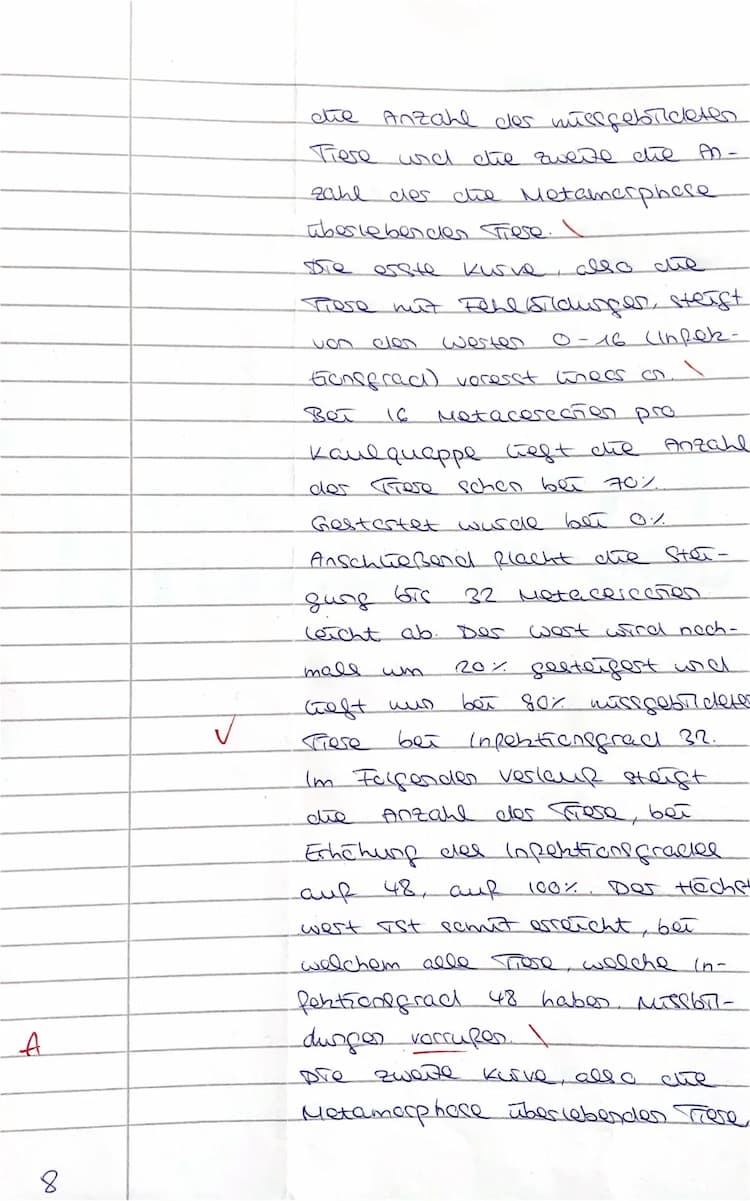 die Anzahl der missgebildeten
Tiere und die zweite die An-
zahl der die Metamorphose
überlebenden Tiere. \
Die erste Kurve, also die
Tiere mit Fehlbildungen, steigt
von den Werten 0-16 (Infek-
tionsgrad) vorerst linear an. \
Bei 16 Metacercarien pro
Kaulquappe liegt die Anzahl
der Tiere schon bei 70%
Gestartet wurde bei 0%
Anschließend flacht die Stei-
gung bis 32 Metacercarien
leicht ab. Der Wert wird noch-
mals um 20% gesteigert und
liegt nun bei 90% missgebildeter
√ Tiere bei Infektionsgrad 32.
Im Folgenden Verlauf steigt
die Anzahl der Tiere, bei
Erhöhung des Infektionsgrades
auf 48, auf 100%. Der Höchst
wert ist somit erreicht, bei
welchem alle Tiere, welche In-
fektionsgrad 48 haben, Missbil-
A dungen vorrufen. \
Die zweite Kurve, also die
Metamorphose überlebenden Tiere,
8